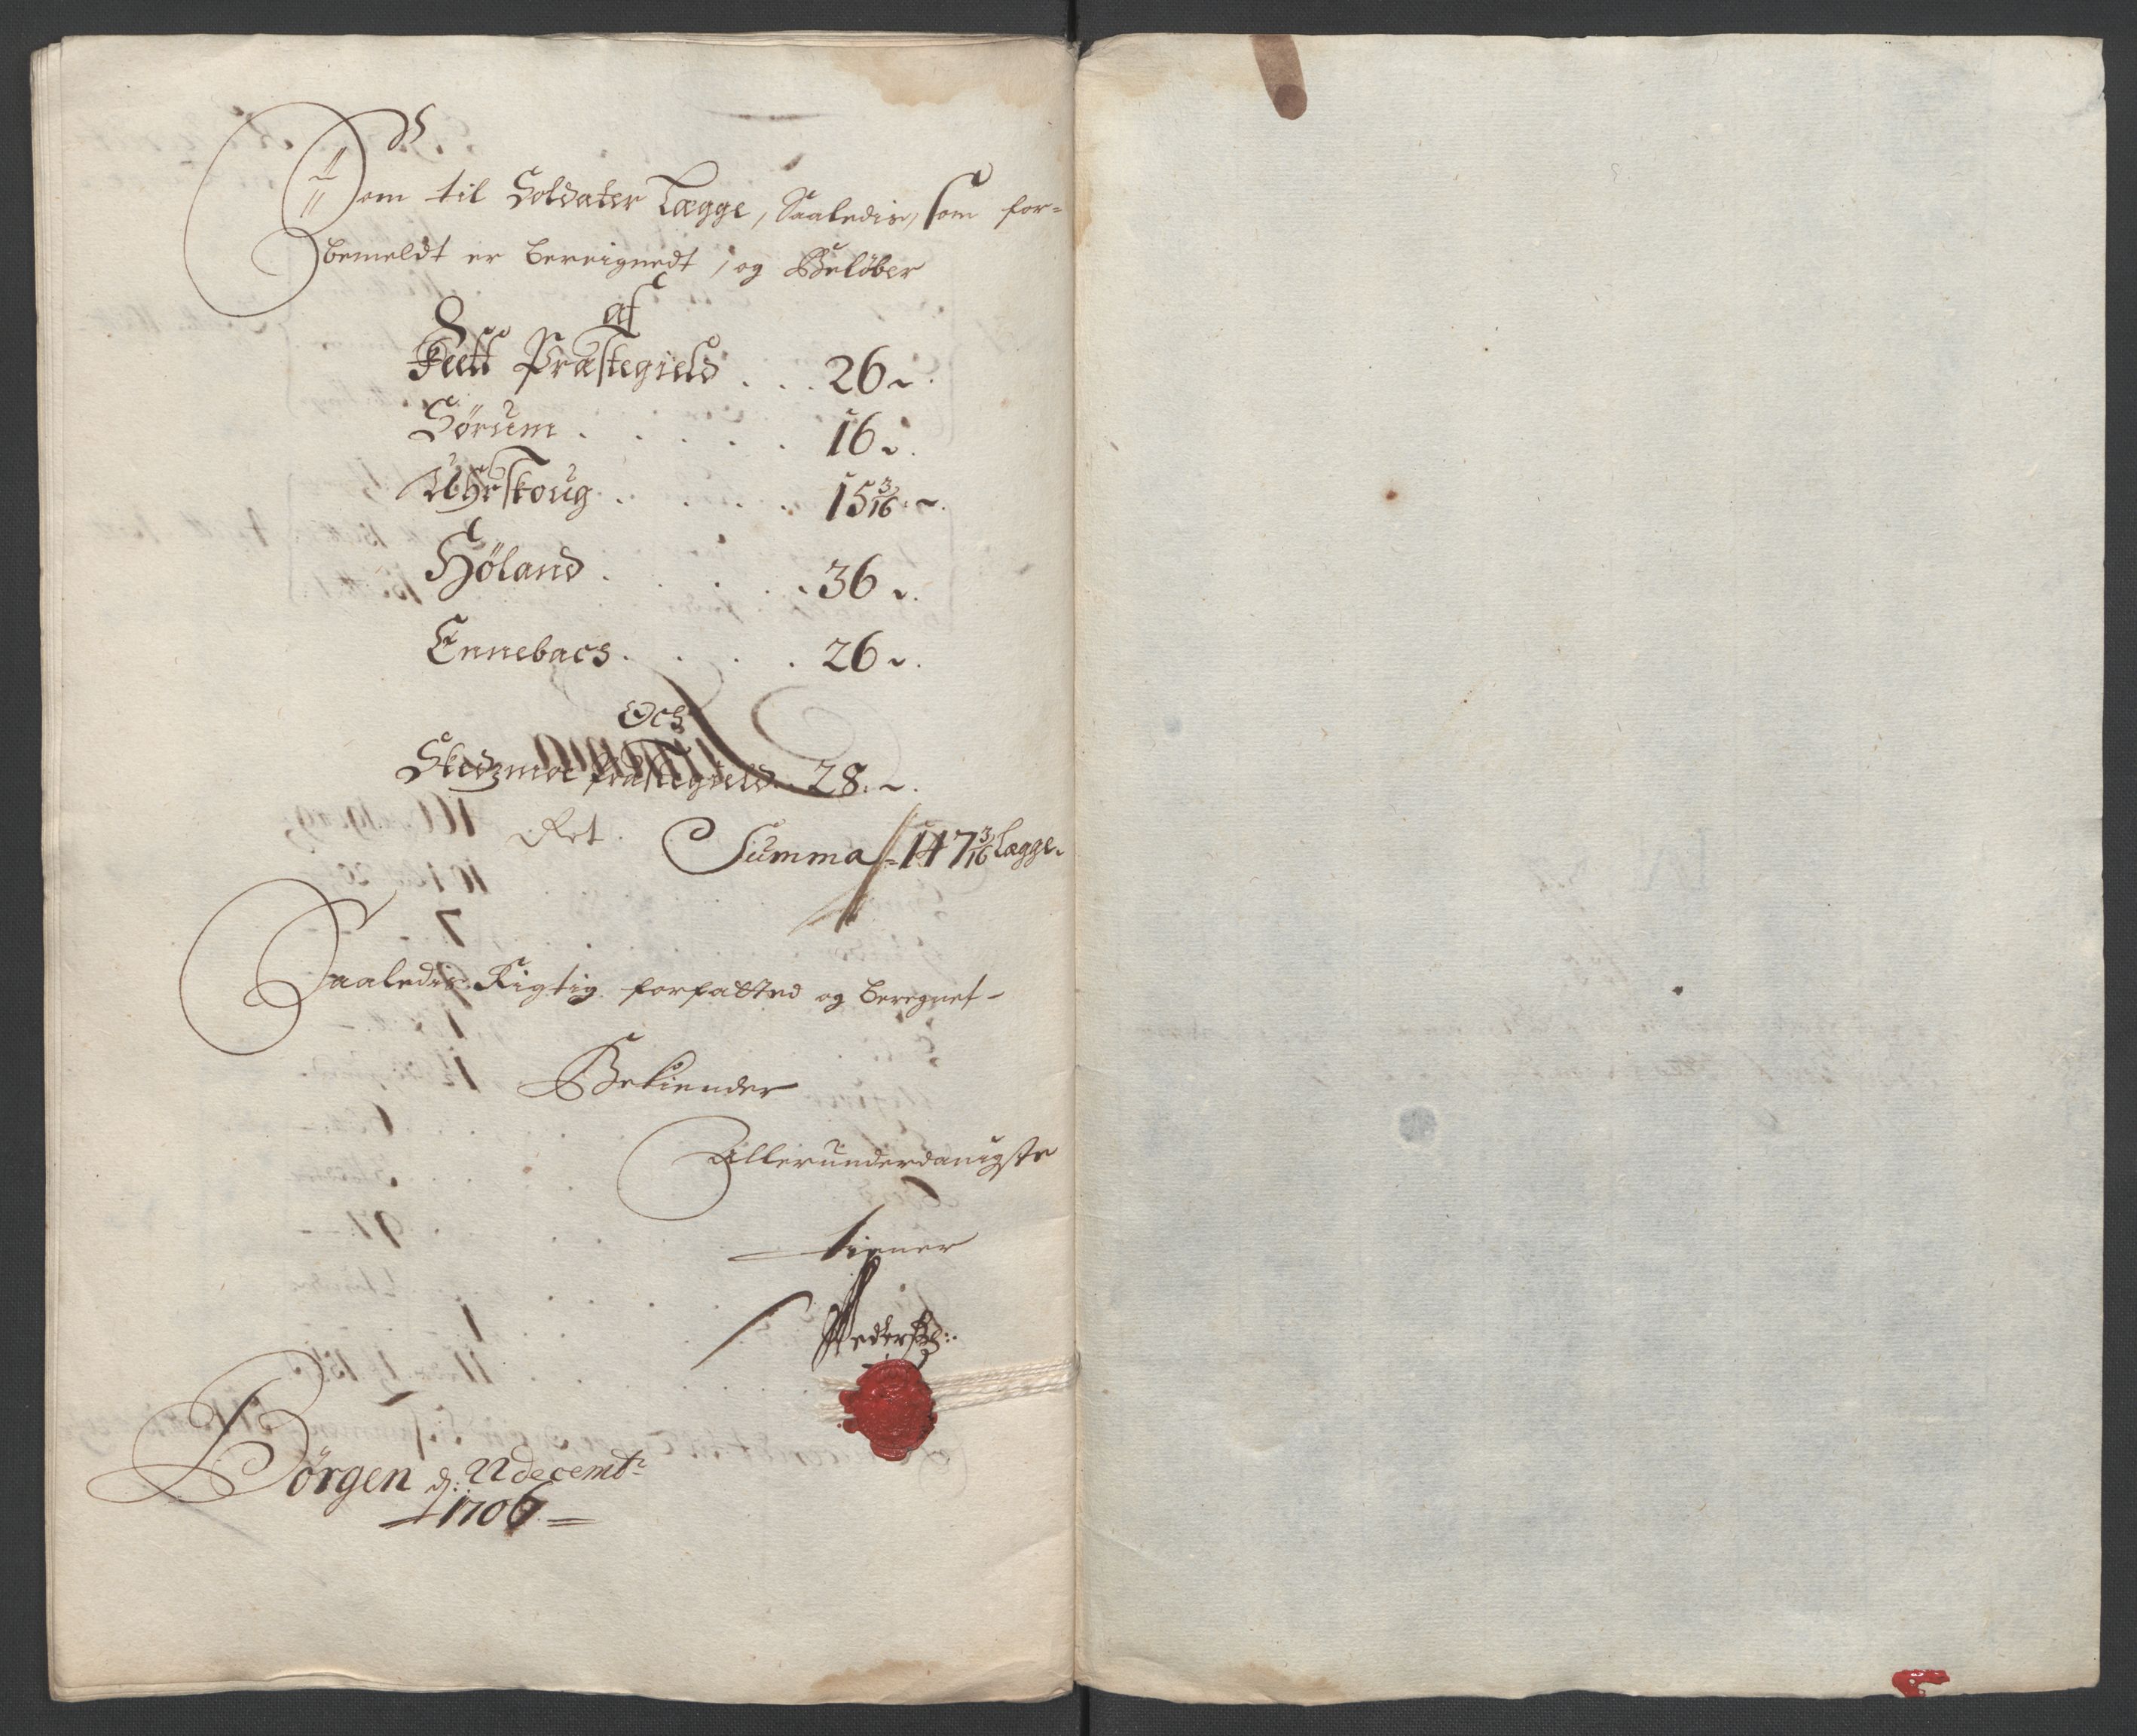 Som til Soldater Lægge, Saaledis, som for-
bemeldt er bereignedt, og Beløber
af
Feett Præstegield . . . 26 ~.
Sørum . . . . . 16 ~.
Uhrskoug . . . . 15 3/16 . ~.
Høland . . . . . 36 ~.
Ennebach . . . . 26 ~.
Och
Skedzmoe præstegield . 28 . ~.
Ret . Summa = 147 3/16 Lægge.
Saaledis Rigtig forfatted og beregnet -
Bekiender
Allerunderdanigste
tiener
Børgen d: 22 decembr
1706